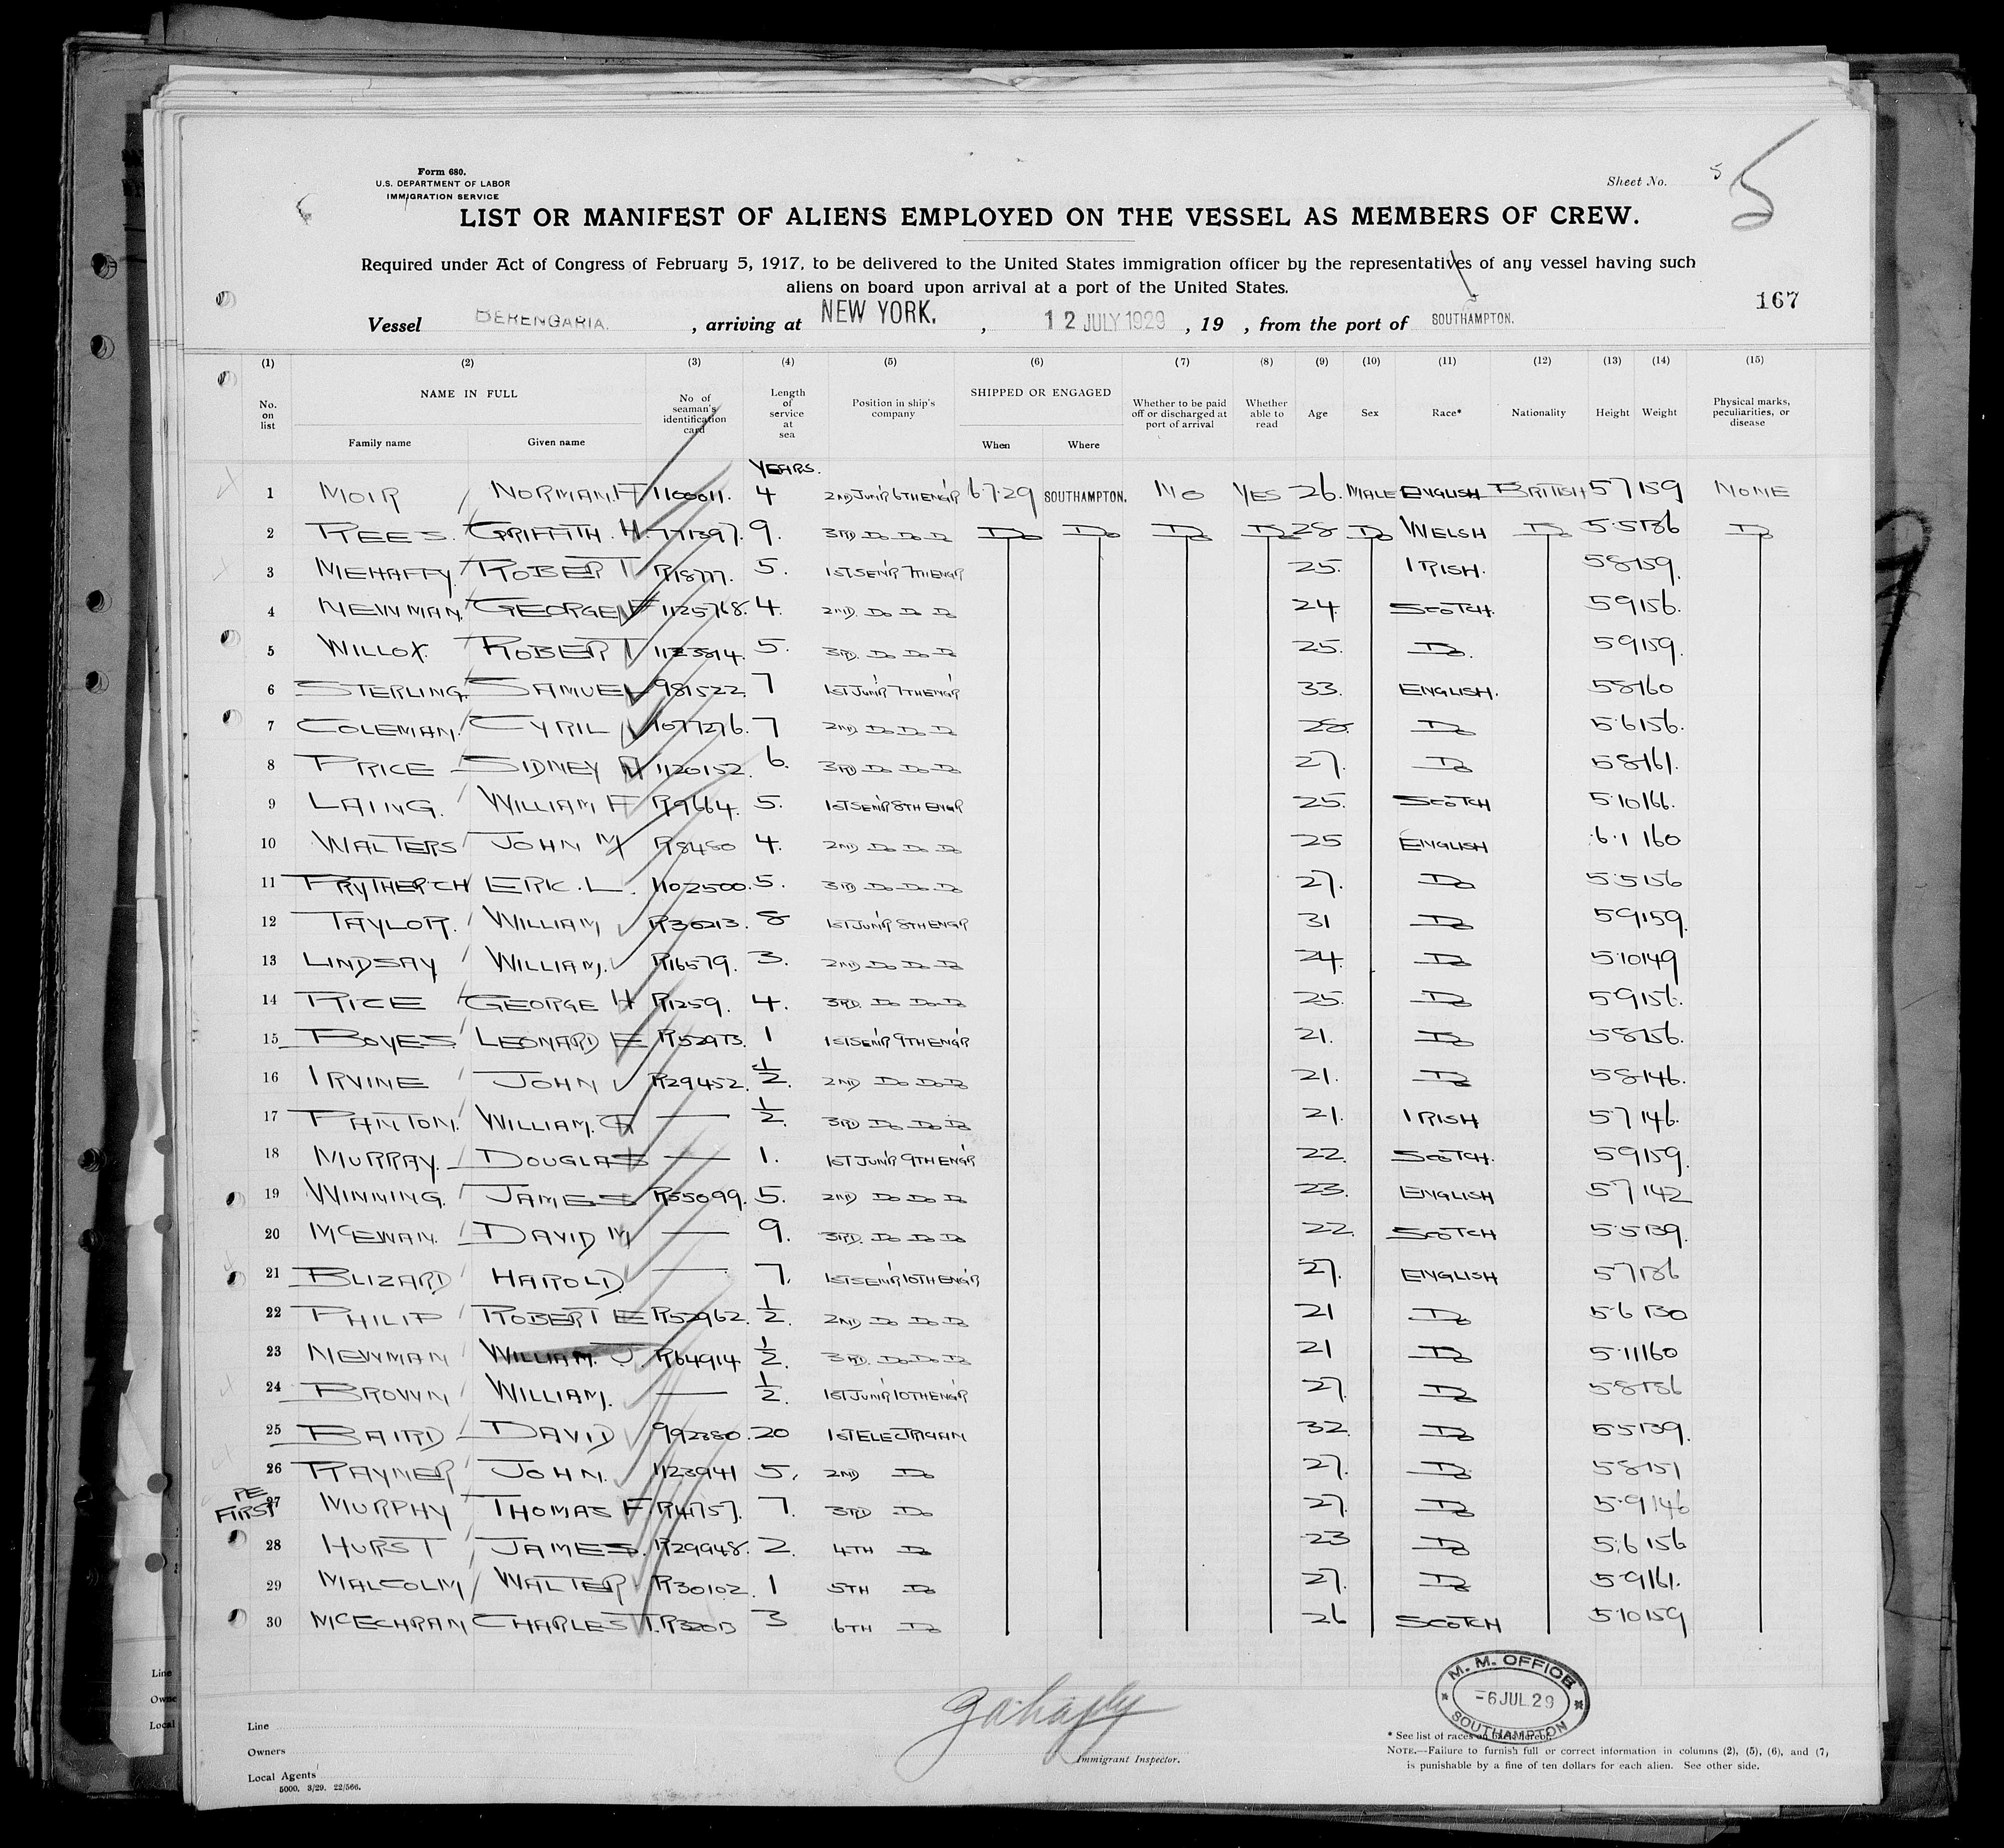 Form 680.
U.S. DEPARTMENT OF LABOR
IMMIGRATION SERVICE
Sheet No. 5
5
LIST OR MANIFEST OF ALIENS EMPLOYED ON THE VESSEL AS MEMBERS OF CREW.
Required under Act of Congress of February 5, 1917, to be delivered to the United States immigration officer by the representatives of any vessel having such
aliens on board upon arrival at a port of the United States.
167
Vessel BERENGARIA. , arriving at NEW YORK. , 12 JULY 1929 , 19 , from the port of SOUTHAMPTON.
(1) (2) (3) (4) (5) (6) (7) (8) (9) (10) (11) (12) (13) (14) (15)
No. on list NAME IN FULL Family name Given name No of seaman's identification card Length of service at sea Position in ship's company SHIPPED OR ENGAGED When Where Whether to be paid off or discharged at port of arrival Whether able to read Age Sex Race* Nationality Height Weight Physical marks, peculiarities, or disease
YEARS.
1 MOIR NORMAN. 1100011. 4 2ND JUN'R 6TH ENG'R 6 7 29 SOUTHAMPTON. NO YES 26. MALE ENGLISH BRITISH 5 7 159 NONE
2 REES. GRIFFITH. H. 771397. 9. 3RD Do Do Do Do Do Do Do 28 Do WELSH Do 5.5 136 Do
3 MEHAFFY. ROBERT R18777. 5. 1ST SEN'R 7TH ENG'R 25. IRISH. 5 8 159.
4 NEWMAN. GEORGE 1125768. 4. 2ND. Do Do Do 24. SCOTCH. 5 9 156.
5 WILLOX. ROBERT 5. 3RD. Do Do Do 25. Do. 5 9 159.
6 STERLING. SAMUEL 981522. 7 1ST JUN'R 7TH ENG'R 33. ENGLISH. 5 8 160
7 COLEMAN. CYRIL 1077276. 7 2ND Do Do Do 28. Do 5.6 156.
8 PRICE SIDNEY 1120152. 6. 3RD Do Do Do 27. Do 5 8 161.
9 LAING. WILLIAM F R9664. 5. 1ST SEN'R 8TH ENG'R 25. SCOTCH 5.10 166.
10 WALTERS JOHN M R8480 4. 2ND Do Do Do 25 ENGLISH 6.1 160
11 PRYTHERCH ERIC. L. 1102500. 5. 3RD Do Do Do 27. Do 5.5 156
12 TAYLOR. WILLIAM R36213. 8 1ST JUN'R 8TH ENG'R 31 Do 5 9 159.
13 LINDSAY WILLIAM. R16579. 3. 2ND Do Do Do 24. Do 5.10 149
14 RICE GEORGE H R1259. 4. 3RD. Do Do Do 25. Do 5 9 156.
15 BOYES LEONARD E R52973. 1 1ST SEN'R 9TH ENG'R 21. Do 5 8 156.
16 IRVINE JOHN R29452. 1/2. 2ND Do Do Do 21. Do 5 8 146.
17 PANTON. WILLIAM. — 1/2. 3RD Do Do Do 21. IRISH 5 7 146.
18 MURRAY. DOUGLAS — 1. 1ST JUN'R 9TH ENG'R 22. SCOTCH. 5 9 159.
19 WINNING. JAMES R55099. 5. 2ND Do Do Do 23. ENGLISH 5 7 142
20 MCEWAN. DAVID M — 9. 3RD. Do Do Do 22. SCOTCH 5.5 139.
21 BLIZARD HAROLD. — 7. 1ST SEN'R 10TH ENG'R 27. ENGLISH 5 7 136
22 PHILIP ROBERT E R52962. 1/2. 2ND Do Do Do 21 Do 5.6 130
23 NEWMAN WILLIAM. J. R64914 1/2. 3RD. Do Do Do 21 Do 5.11 160
24 BROWN WILLIAM. — 1/2. 1ST JUN'R 10TH ENG'R 27. Do 5 8 136
25 BAIRD DAVID 992380. 20 1ST ELECTRICIAN 32. Do 5 5 139.
26 RAYNER JOHN. 1123941 5. 2ND Do 27. Do 5 8 151
PE FIRST
27 MURPHY THOMAS F. R41757. 7. 3RD Do 27. Do 5.9 146
28 HURST JAMES. R29948. 2. 4TH Do 23 Do 5.6 156
29 MALCOLM WALTER R30102. 1 5TH Do 27. Do 5.9 161.
30 MCECHRAN CHARLES T. 3 6TH Do 26 SCOTCH 5.10 159
M. M. OFFICE
-6 JUL.29
SOUTHAMPTON
Line
Owners
Local Agents
5000. 3/29. 22/566.
Immigrant Inspector.
* See list of races on back hereof.
NOTE.—Failure to furnish full or correct information in columns (2), (5), (6), and (7,
is punishable by a fine of ten dollars for each alien. See other side.
Line
Owne
Local